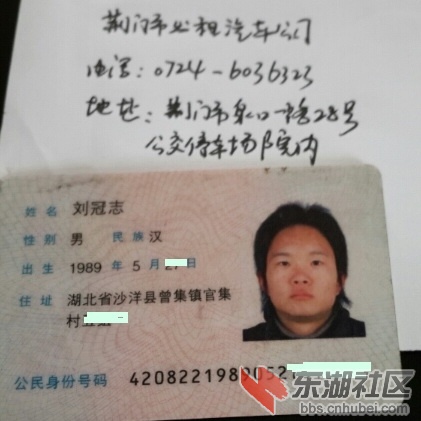 荆门市公租汽车公司
电话：0724-6036323
地址：荆门市泉口一路28号
公交停车场院内
姓名 刘冠志
性别 男 民族 汉
出生 1989 年 5 月 日
住址 湖北省沙洋县曾集镇官集
村
公民身份号码
东湖社区
bbs.cnhubei.com